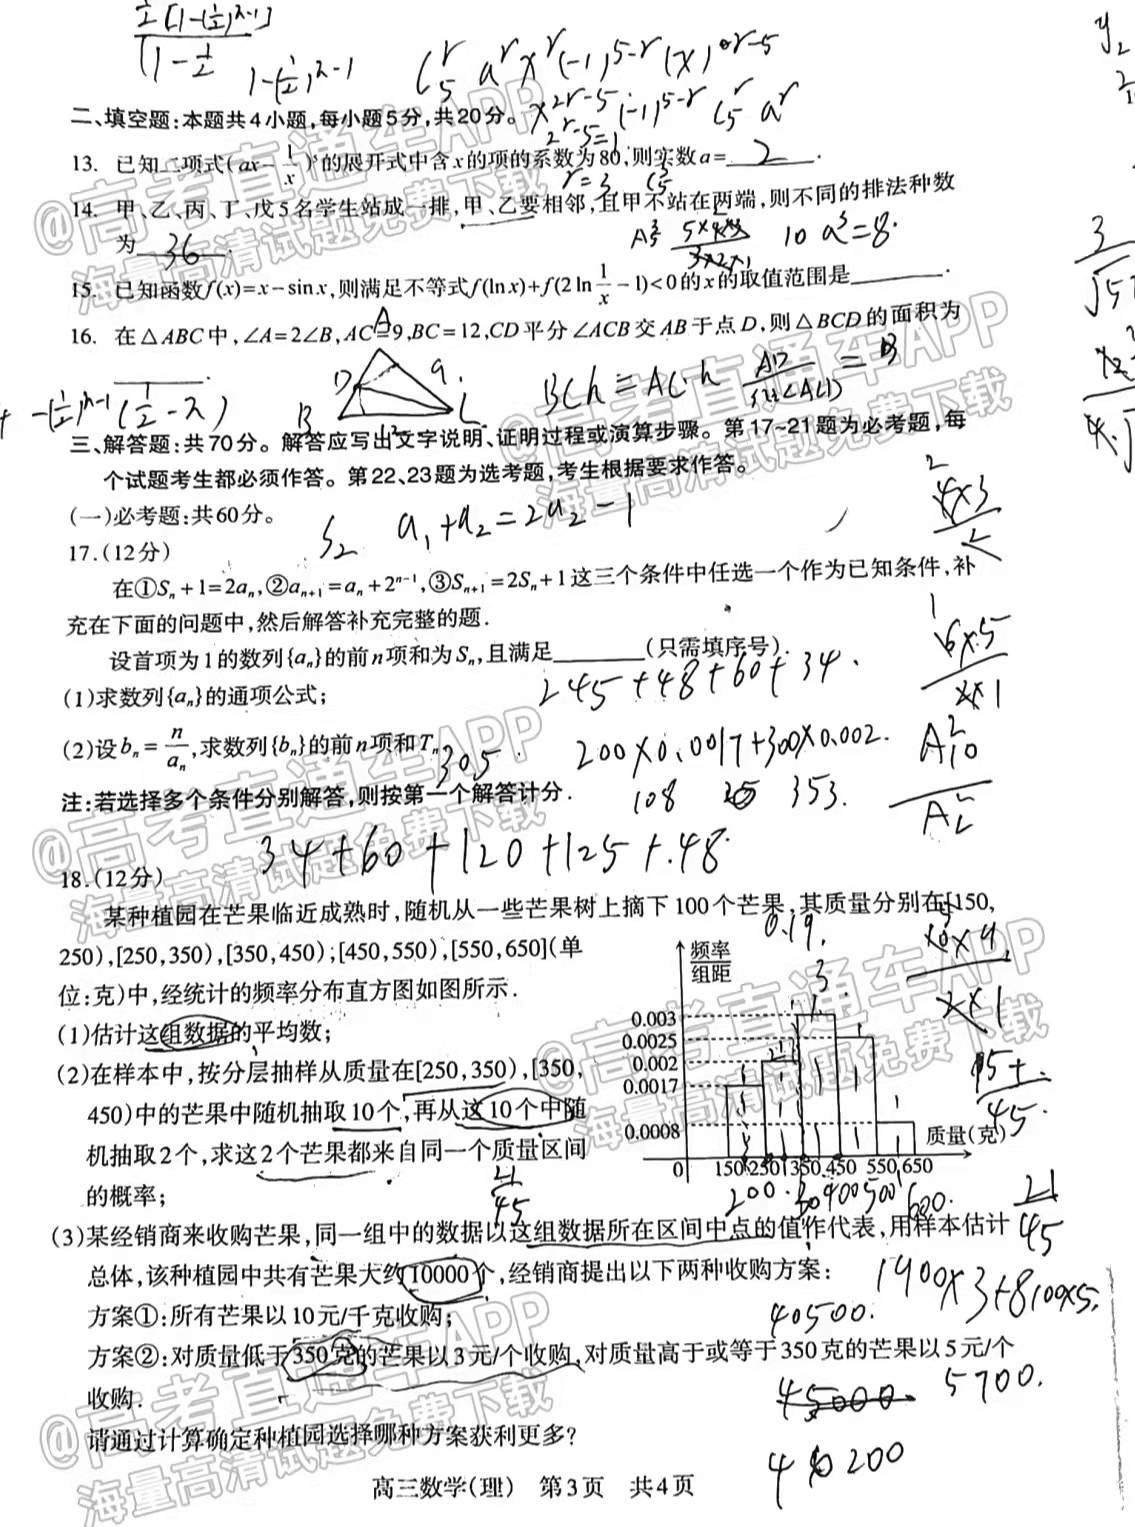 ½[1-(½)^(n-1)]
1-½
1-(½)^(n-1)
C₅^r a^r x^r (-1)^(5-r) (x)^(r-5)
二、填空题:本题共4小题,每小题5分,共20分。
x^(2r-5) (-1)^(5-r) C₅^r a^r
2r-5=1
13. 已知二项式(ax-1/x)⁵的展开式中含x的项的系数为80,则实数a=2.
r=3 C₅³
14. 甲、乙、丙、丁、戊5名学生站成一排,甲、乙要相邻,且甲不站在两端,则不同的排法种数
为36.
10 a³=8.
15. 已知函数f(x)=x-sinx,则满足不等式f(lnx)+f(2ln1/x-1)<0的x的取值范围是________.
16. 在△ABC中,∠A=2∠B,AC=9,BC=12,CD平分∠ACB交AB于点D,则△BCD的面积为
________.
A
D
9
B
12
BCh=AC·h
三、解答题:共70分。解答应写出文字说明、证明过程或演算步骤。第17~21题为必考题,每
个试题考生都必须作答。第22、23题为选考题,考生根据要求作答。
(一)必考题:共60分。
S₂ a₁+a₂=2a₂-1
17.(12分)
在①Sₙ+1=2aₙ,②aₙ₊₁=aₙ+2ⁿ⁻¹,③Sₙ₊₁=2Sₙ+1这三个条件中任选一个作为已知条件,补
充在下面的问题中,然后解答补充完整的题.
设首项为1的数列{aₙ}的前n项和为Sₙ,且满足________(只需填序号).
245+48+60+34.
(1)求数列{aₙ}的通项公式;
(2)设bₙ=n/aₙ,求数列{bₙ}的前n项和Tₙ.
305
200×0.0017+300×0.002.
108 353.
注:若选择多个条件分别解答,则按第一个解答计分.
34+60+120+125+48.
18.(12分)
某种植园在芒果临近成熟时,随机从一些芒果树上摘下100个芒果,其质量分别在[150,
250),[250,350),[350,450);[450,550),[550,650](单
位:克)中,经统计的频率分布直方图如图所示.
(1)估计这组数据的平均数;
(2)在样本中,按分层抽样从质量在[250,350),[350,
450)中的芒果中随机抽取10个,再从这10个中随
机抽取2个,求这2个芒果都来自同一个质量区间
的概率;
21/45
0.19.
频率
组距
0.003
0.0025
0.002
0.0017
0.0008
0 150 250 350 450 550 650 质量(克)
200. 300 400 500 600.
(3)某经销商来收购芒果,同一组中的数据以这组数据所在区间中点的值作代表,用样本估计
总体,该种植园中共有芒果大约10000个,经销商提出以下两种收购方案:
方案①:所有芒果以10元/千克收购;
方案②:对质量低于350克的芒果以3元/个收购,对质量高于或等于350克的芒果以5元/个
收购.
请通过计算确定种植园选择哪种方案获利更多?
21/45
1900×3+8100×5.
40500.
45000
5700.
高三数学(理) 第3页 共4页
@高考直通车APP
海量高清试题免费下载